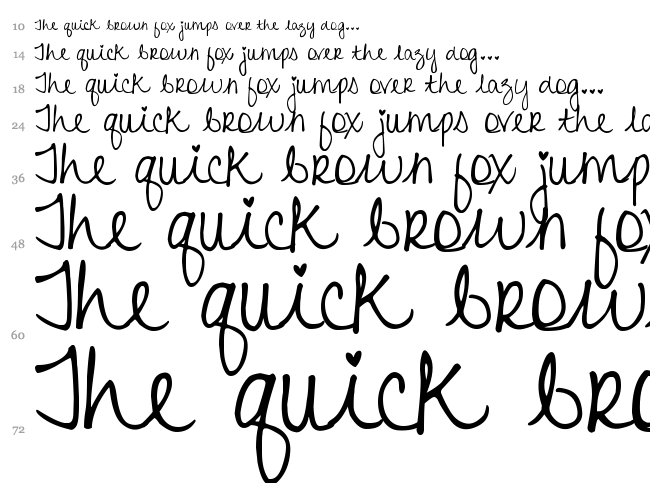 10 The quick brown fox jumps over the lazy dog...
14 The quick brown fox jumps over the lazy dog...
18 The quick brown fox jumps over the lazy dog...
24 The quick brown fox jumps over the la
36 The quick brown fox jump
48 The quick brown fox
60 The quick brown
72 The quick bro